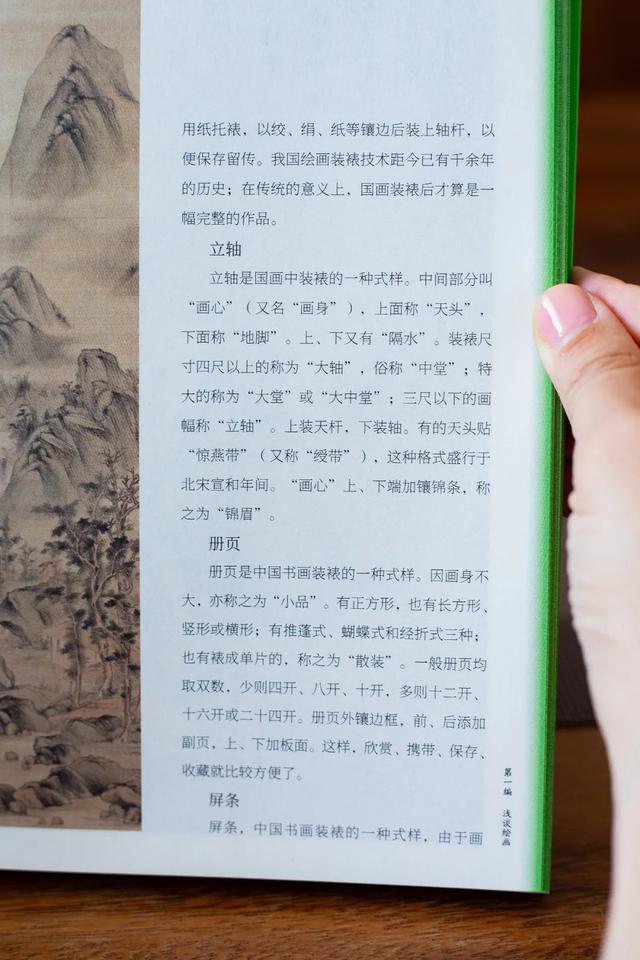 用纸托裱，以绞、绢、纸等镶边后装上轴杆，以
便保存留传。我国绘画装裱技术距今已有千余年
的历史；在传统的意义上，国画装裱后才算是一
幅完整的作品。
立轴
立轴是国画中装裱的一种式样。中间部分叫
“画心”（又名“画身”），上面称“天头”，
下面称“地脚”。上、下又有“隔水”。装裱尺
寸四尺以上的称为“大轴”，俗称“中堂”；特
大的称为“大堂”或“大中堂”；三尺以下的画
幅称“立轴”。上装天杆，下装轴。有的天头贴
“惊燕带”（又称“绶带”），这种格式盛行于
北宋宣和年间。“画心”上、下端加镶锦条，称
之为“锦眉”。
册页
册页是中国书画装裱的一种式样。因画身不
大，亦称之为“小品”。有正方形，也有长方形、
竖形或横形；有推蓬式、蝴蝶式和经折式三种；
也有裱成单片的，称之为“散装”。一般册页均
取双数，少则四开、八开、十开，多则十二开、
十六开或二十四开。册页外镶边框，前、后添加
副页，上、下加板面。这样，欣赏、携带、保存、
收藏就比较方便了。
屏条
屏条，中国书画装裱的一种式样，由于画
第一编 浅谈绘画